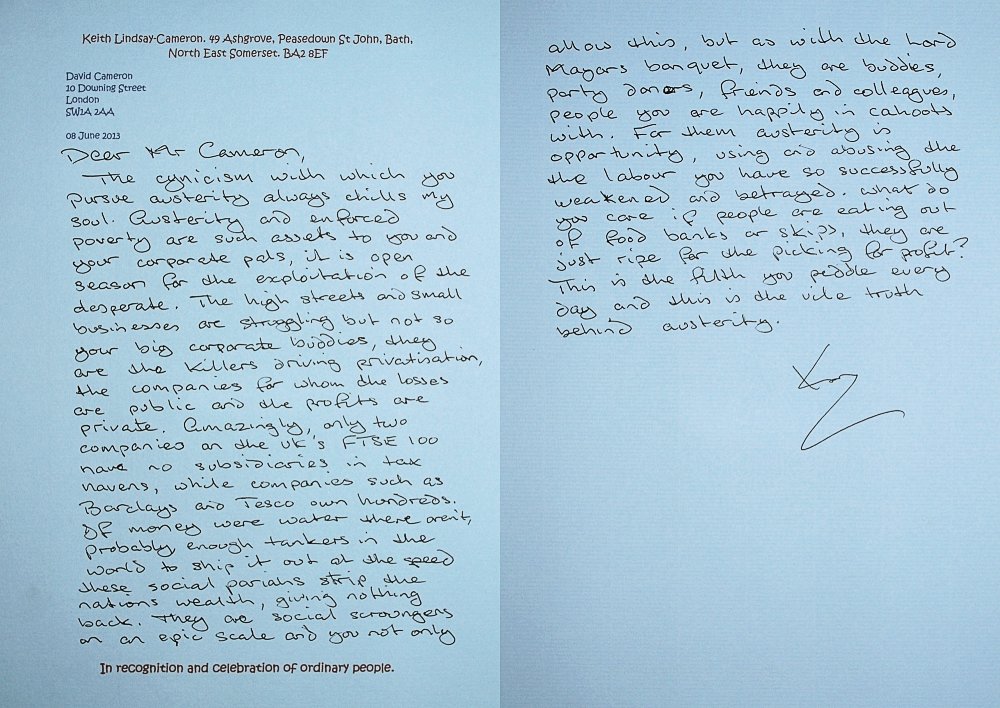 Keith Lindsay-Cameron. 49 Ashgrove, Peasedown St John, Bath,
North East Somerset. BA2 8EF
David Cameron
10 Downing Street
London
SW1A 2AA
08 June 2013
Dear Mr Cameron,
The cynicism with which you
pursue austerity always chills my
soul. Austerity and enforced
poverty are such assets to you and
your corporate pals, it is open
season for the exploitation of the
desperate. The high streets and small
businesses are struggling but not so
your big corporate buddies, they
are the killers driving privatisation,
the companies for whom the losses
are public and the profits are
private. Amazingly, only two
companies on the UK's FTSE 100
have no subsidiaries in tax
havens, while companies such as
Barclays and Tesco own hundreds.
If money were water there aren't,
probably, enough tankers in the
world to ship it out at the speed
these social pariahs strip the
nations wealth, giving nothing
back. They are social scroungers
on an epic scale and you not only
In recognition and celebration of ordinary people.
allow this, but as with the Lord
Mayors banquet, they are buddies,
party donors, friends and colleagues,
people you are happily in cahoots
with. For them austerity is
opportunity, using and abusing the
the labour you have so successfully
weakened and betrayed. What do
you care if people are eating out
of food banks or skips, they are
just ripe for the picking for profit?
This is the filth you peddle every
day and this is the vile truth
behind austerity.